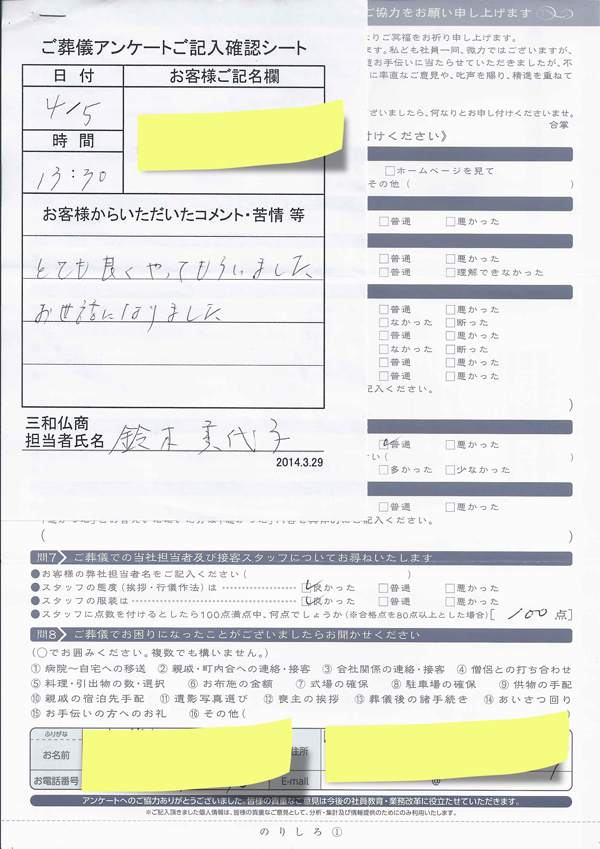 ご協力をお願い申し上げます
ご葬儀アンケートご記入確認シート
日付
お客様ご記名欄
4/5
時間
13:30
お客様からいただいたコメント・苦情 等
とても良くやってもらいました
お世話になりました
三和仏商
担当者氏名 鈴木美代子
2014.3.29
りご冥福をお祈り申し上げます。
ます。私ども社員一同、微力ではございますが、
お手伝いに当たらせていただきましたが、不
に率直なご意見や、叱声を賜り、精進を重ねて
ざいましたら、何なりとお申し付けくださいませ。
合掌
付けください》
□ホームページを見て
その他( )
□普通 □悪かった
□普通 □悪かった
□普通 □理解できなかった
□普通 □悪かった
□なかった □断った
□普通 □悪かった
□なかった □断った
□普通 □悪かった
□普通 □悪かった
記入ください。
)
□普通 □悪かった
さい( )
□多かった □少なかった
□普通 □悪かった
ご記入ください。
( )
問7 ご葬儀での当社担当者及び接客スタッフについてお尋ねいたします
●お客様の弊社担当者名をご記入ください( )
●スタッフの態度(挨拶・行儀作法)は □良かった □普通 □悪かった
●スタッフの服装は □良かった □普通 □悪かった
●スタッフに点数を付けるとしたら100点満点中、何点でしょうか(※合格点を80点以上とした場合)[ 100 点]
問8 ご葬儀でお困りになったことがございましたらお聞かせください
(○でお囲みください。複数でも構いません。)
①病院〜自宅への移送 ②親戚・町内会への連絡・接客 ③会社関係の連絡・接客 ④僧侶との打ち合わせ
⑤料理・引出物の数・選択 ⑥お布施の金額 ⑦式場の確保 ⑧駐車場の確保 ⑨供物の手配
⑩親戚の宿泊先手配 ⑪遺影写真選び ⑫喪主の挨拶 ⑬葬儀後の諸手続き ⑭あいさつ回り
⑮お手伝いの方へのお礼 ⑯その他( )
ふりがな
お名前
住所
お電話番号
E-mail
@
アンケートへのご協力ありがとうございました。皆様の貴重なご意見は今後の社員教育・業務改革に役立たせていただきます。
※ご記入頂きました個人情報は、皆様の貴重なご意見として、分析・集計及び情報提供のためにのみ利用いたします。
のりしろ①